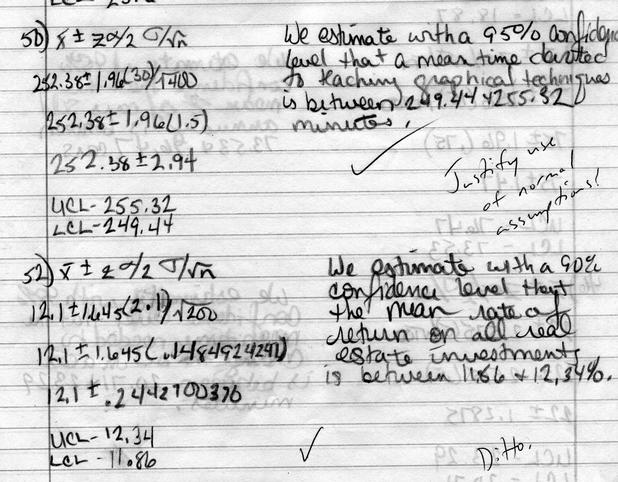 50) x̄ ± zα/2 σ/√n
252.38 ± 1.96(30)/√400
252.38 ± 1.96(1.5)
252.38 ± 2.94
UCL - 255.32
LCL - 249.44
We estimate with a 95% confidenc
level that a mean time devoted
to teaching graphical techniques
is between 249.44 + 255.32
minutes.
✓
Justify use
of normal
assumptions!
52) x̄ ± zα/2 σ/√n
12.1 ± 1.645(2.1)/√200
12.1 ± 1.645(.1484924241)
12.1 ± .2442700376
UCL - 12.34
LCL - 11.86
We estimate with a 90%
confidence level that
the mean rate of
return on all real
estate investments
is between 11.86 + 12.34%.
✓
Ditto.